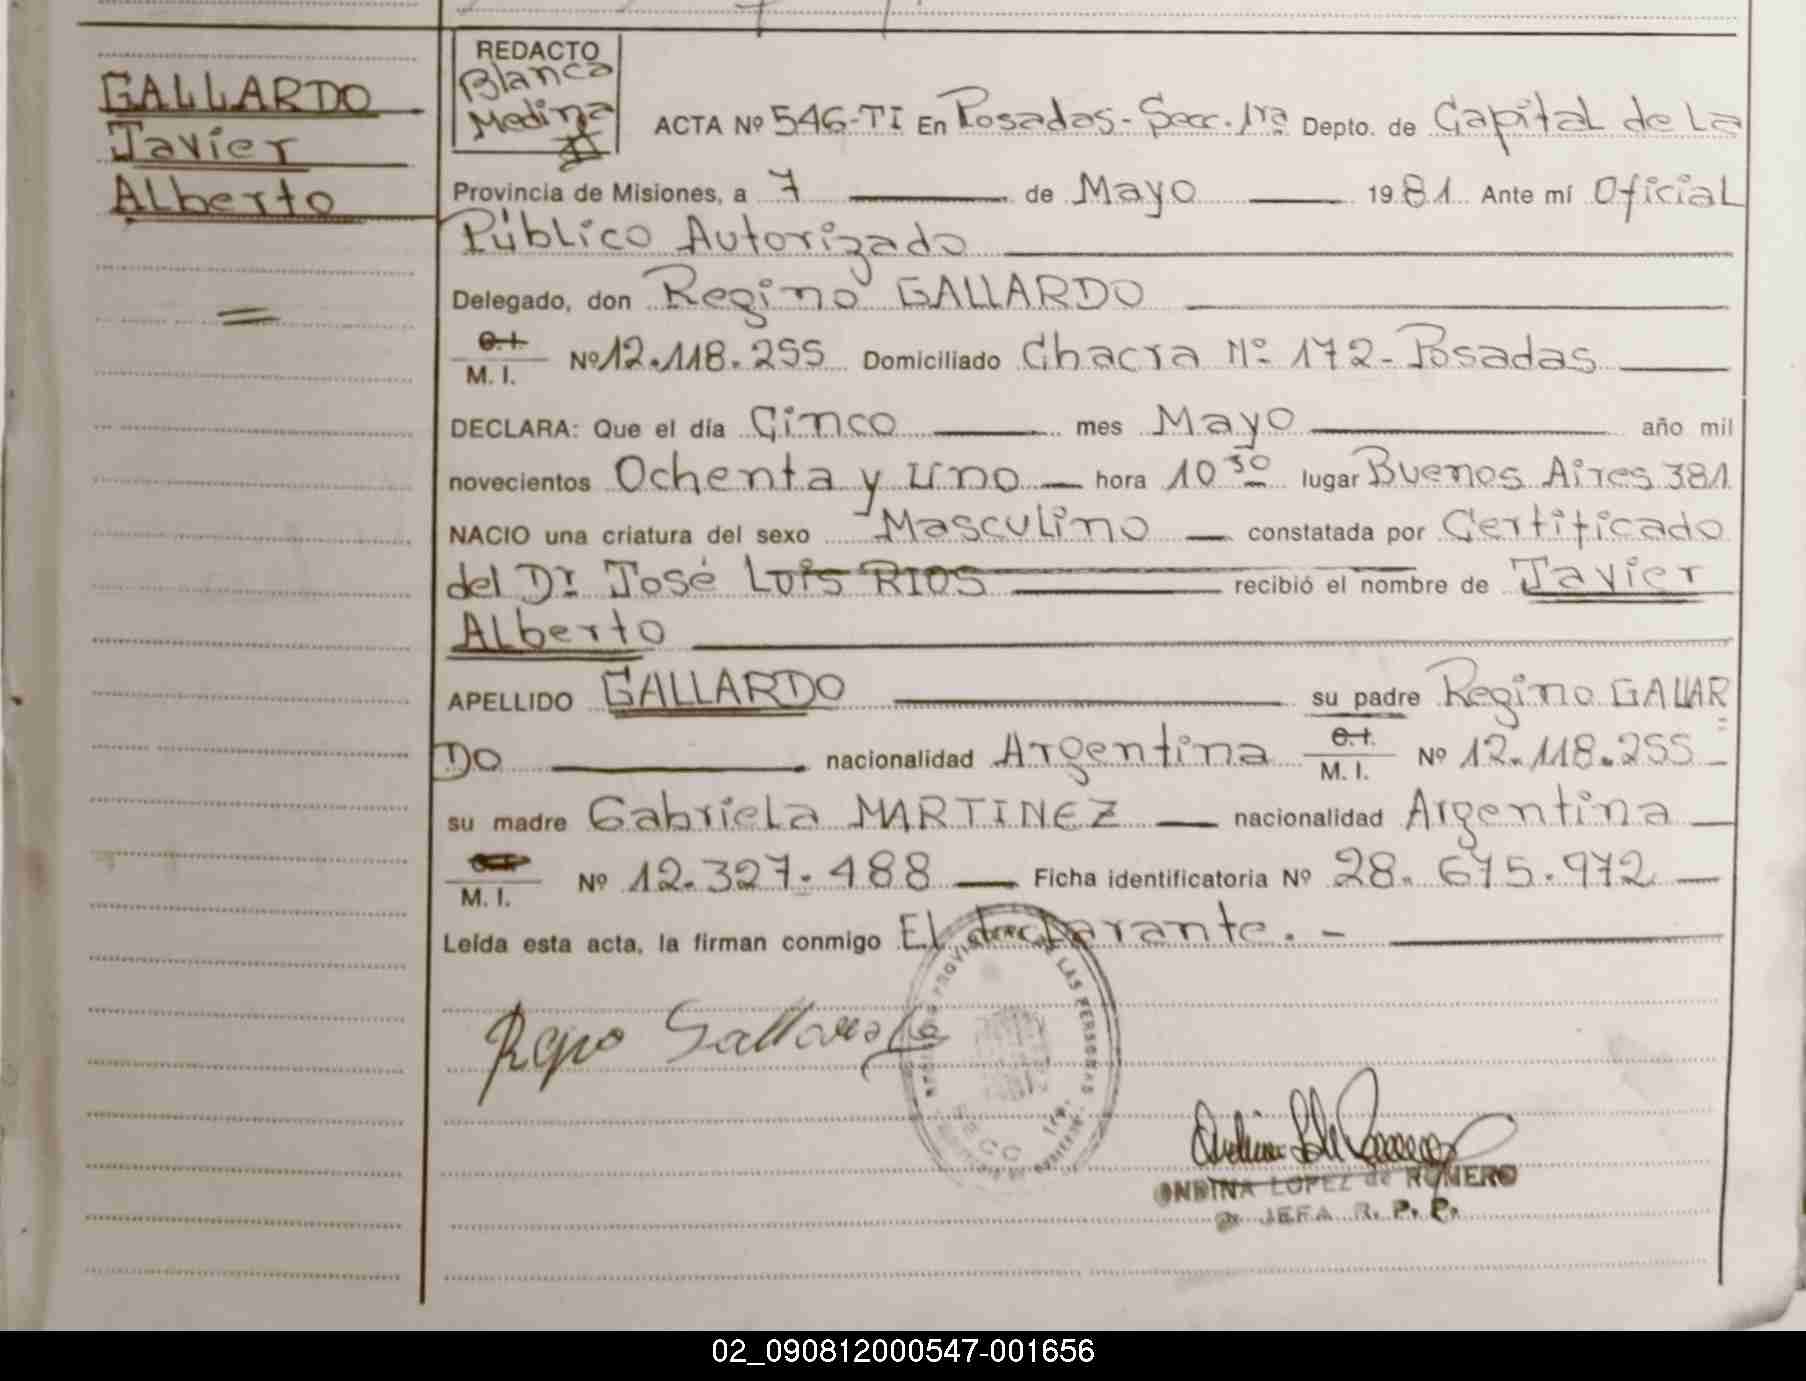 GALLARDO
Javier
Alberto
REDACTO
Blanca
Medina
ACTA Nº 546-TI En Posadas - Secc. 1ra Depto. de Capital de La
Provincia de Misiones, a 7 de Mayo 1981 Ante mí Oficial
Público Autorizado
Delegado, don Regino GALLARDO
C.I.
M. I. Nº 12.118.255 Domiciliado Chacra Nº 172 - Posadas
DECLARA: Que el día Cinco mes Mayo año mil
novecientos Ochenta y uno hora 10 30 lugar Buenos Aires 381
NACIO una criatura del sexo Masculino constatada por Certificado
del Dr. José Luis RIOS recibió el nombre de Javier
Alberto
APELLIDO GALLARDO su padre Regino GALLAR
DO nacionalidad Argentina C.I. M. I. Nº 12.118.255
su madre Gabriela MARTINEZ nacionalidad Argentina
M. I. Nº 12.327.488 Ficha identificatoria Nº 28.675.972
Leída esta acta, la firman conmigo El declarante. -
Gallardo
PROVINCIAL DE LAS PERSONAS
SECC. 1ra.
ONDINA LOPEZ de ROMERO
JEFA R. P. P.
02_090812000547-001656